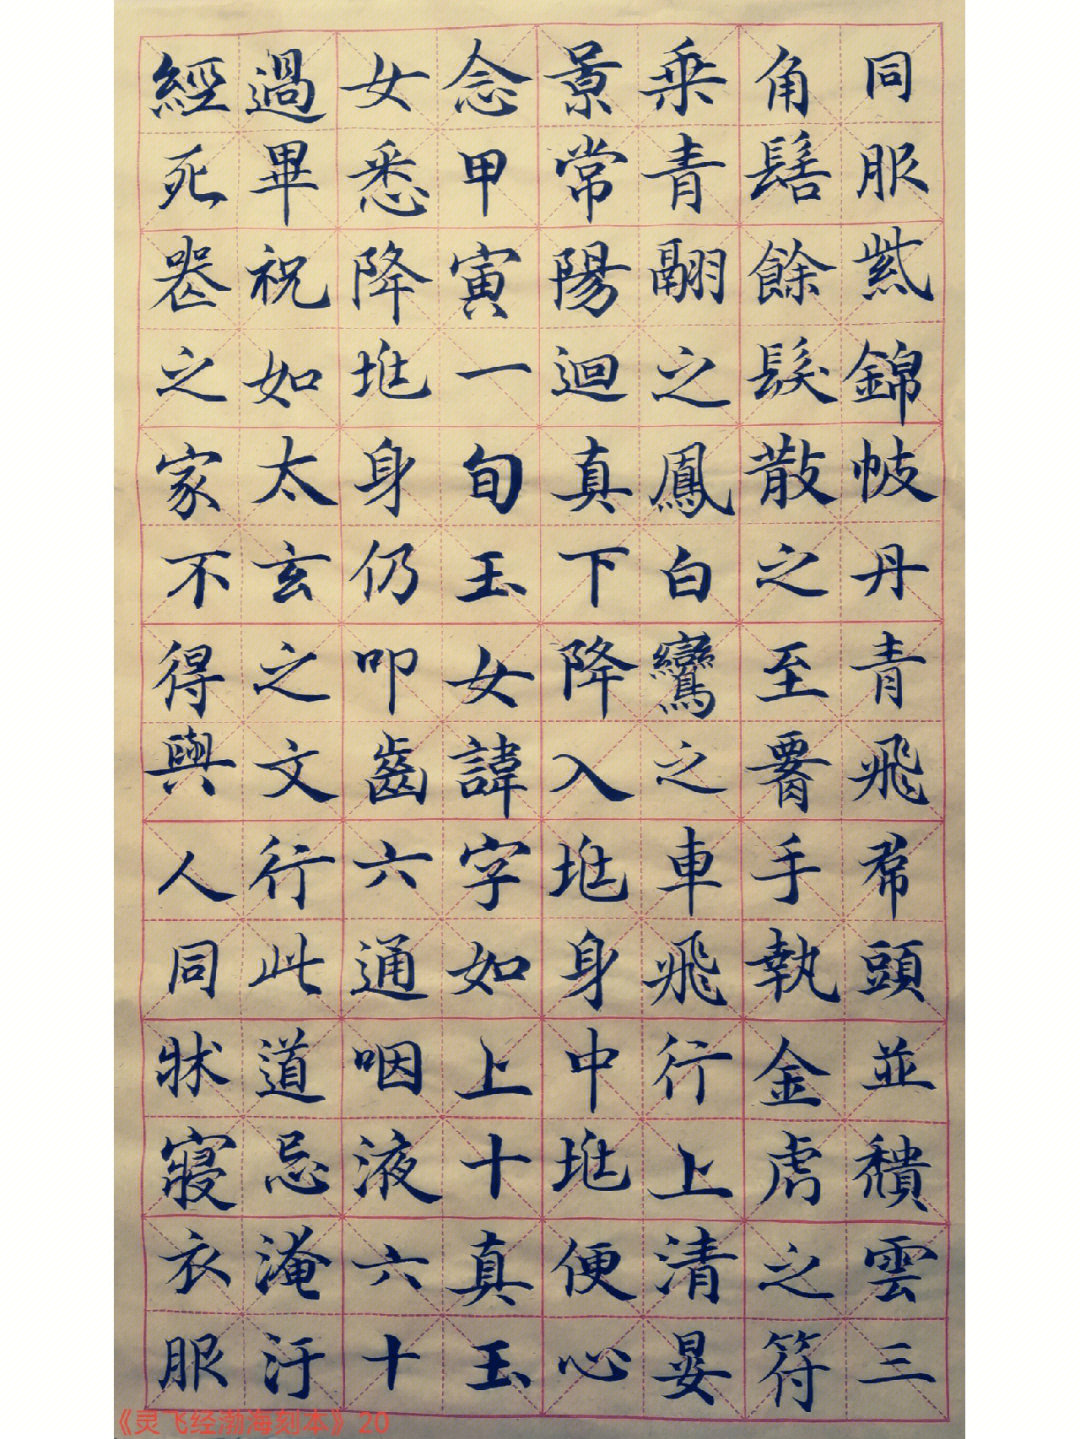 同服紫錦帔丹青飛帬頭並穨雲三
角髻餘髮散之至署手執金虎之符
乗青翮之鳳白鸞之車飛行上清晏
景常陽迴真下降入𡉏身中𡉏便心
念甲寅一旬玉女諱字如上十真玉
女悉降𡉏身仍叩齒六通咽液六十
過畢祝如太玄之文行此道忌淹汙
經死䘮之家不得與人同牀寢衣服
《灵飞经渤海刻本》20